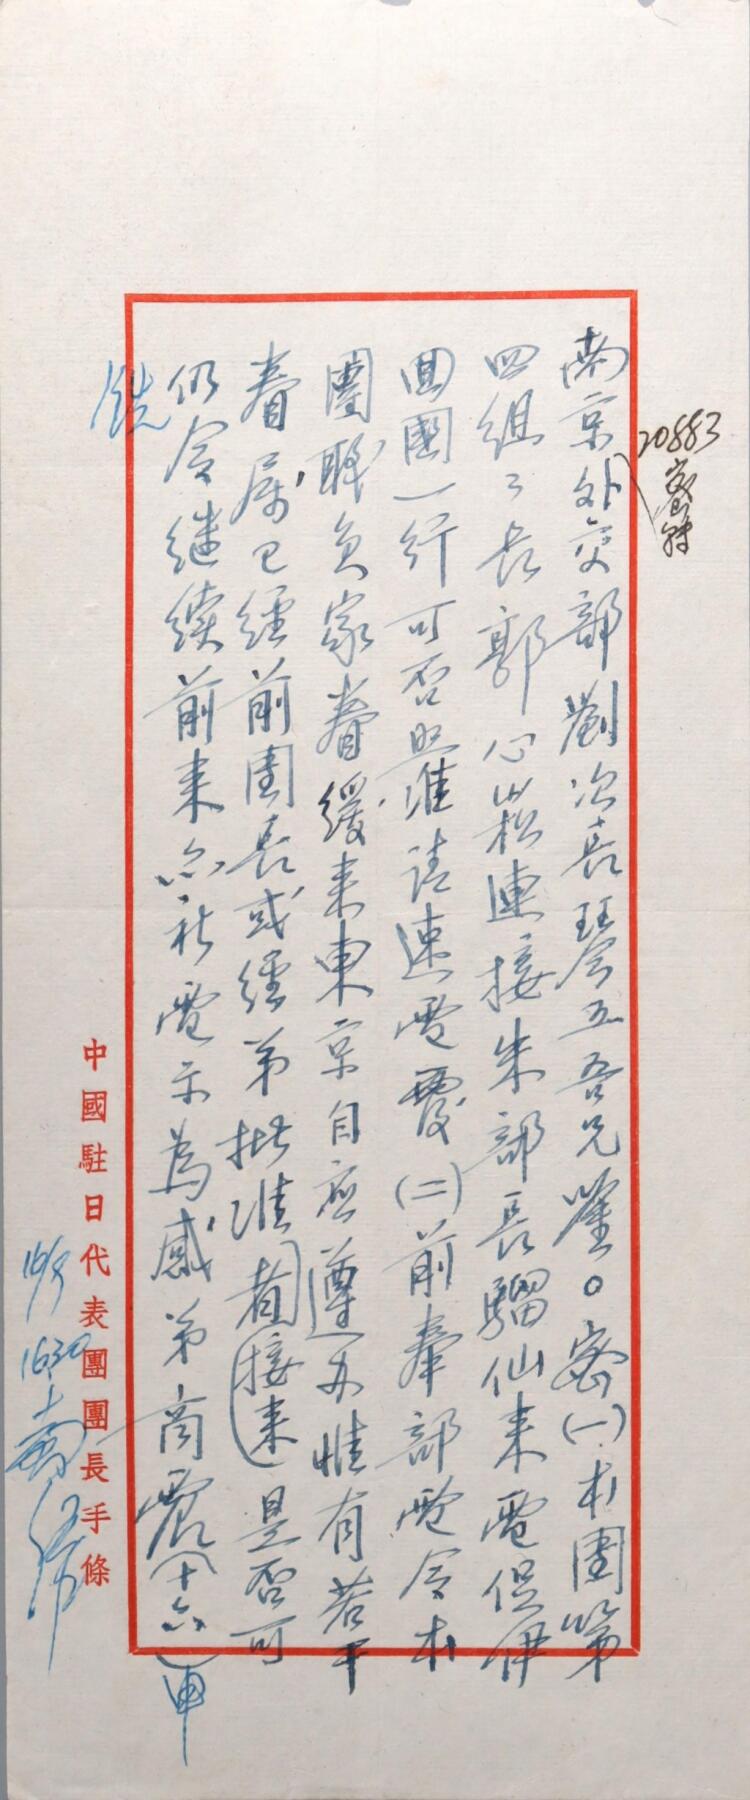 南京外交部劉次長鍇吾兄鑒。密(一)本團第
四組々長郭心崧連接朱部長騮仙來電促伊
回國一行可否照准請速電覆(二)前奉部電令本
團職員家眷緩來東京自應遵办惟有若干
眷属已經前團長或經弟批准者(接来)是否可
仍令继续前来亦祈電示為感弟商震(十六)申
20883
中國駐日代表團團長手條
16/9
1630